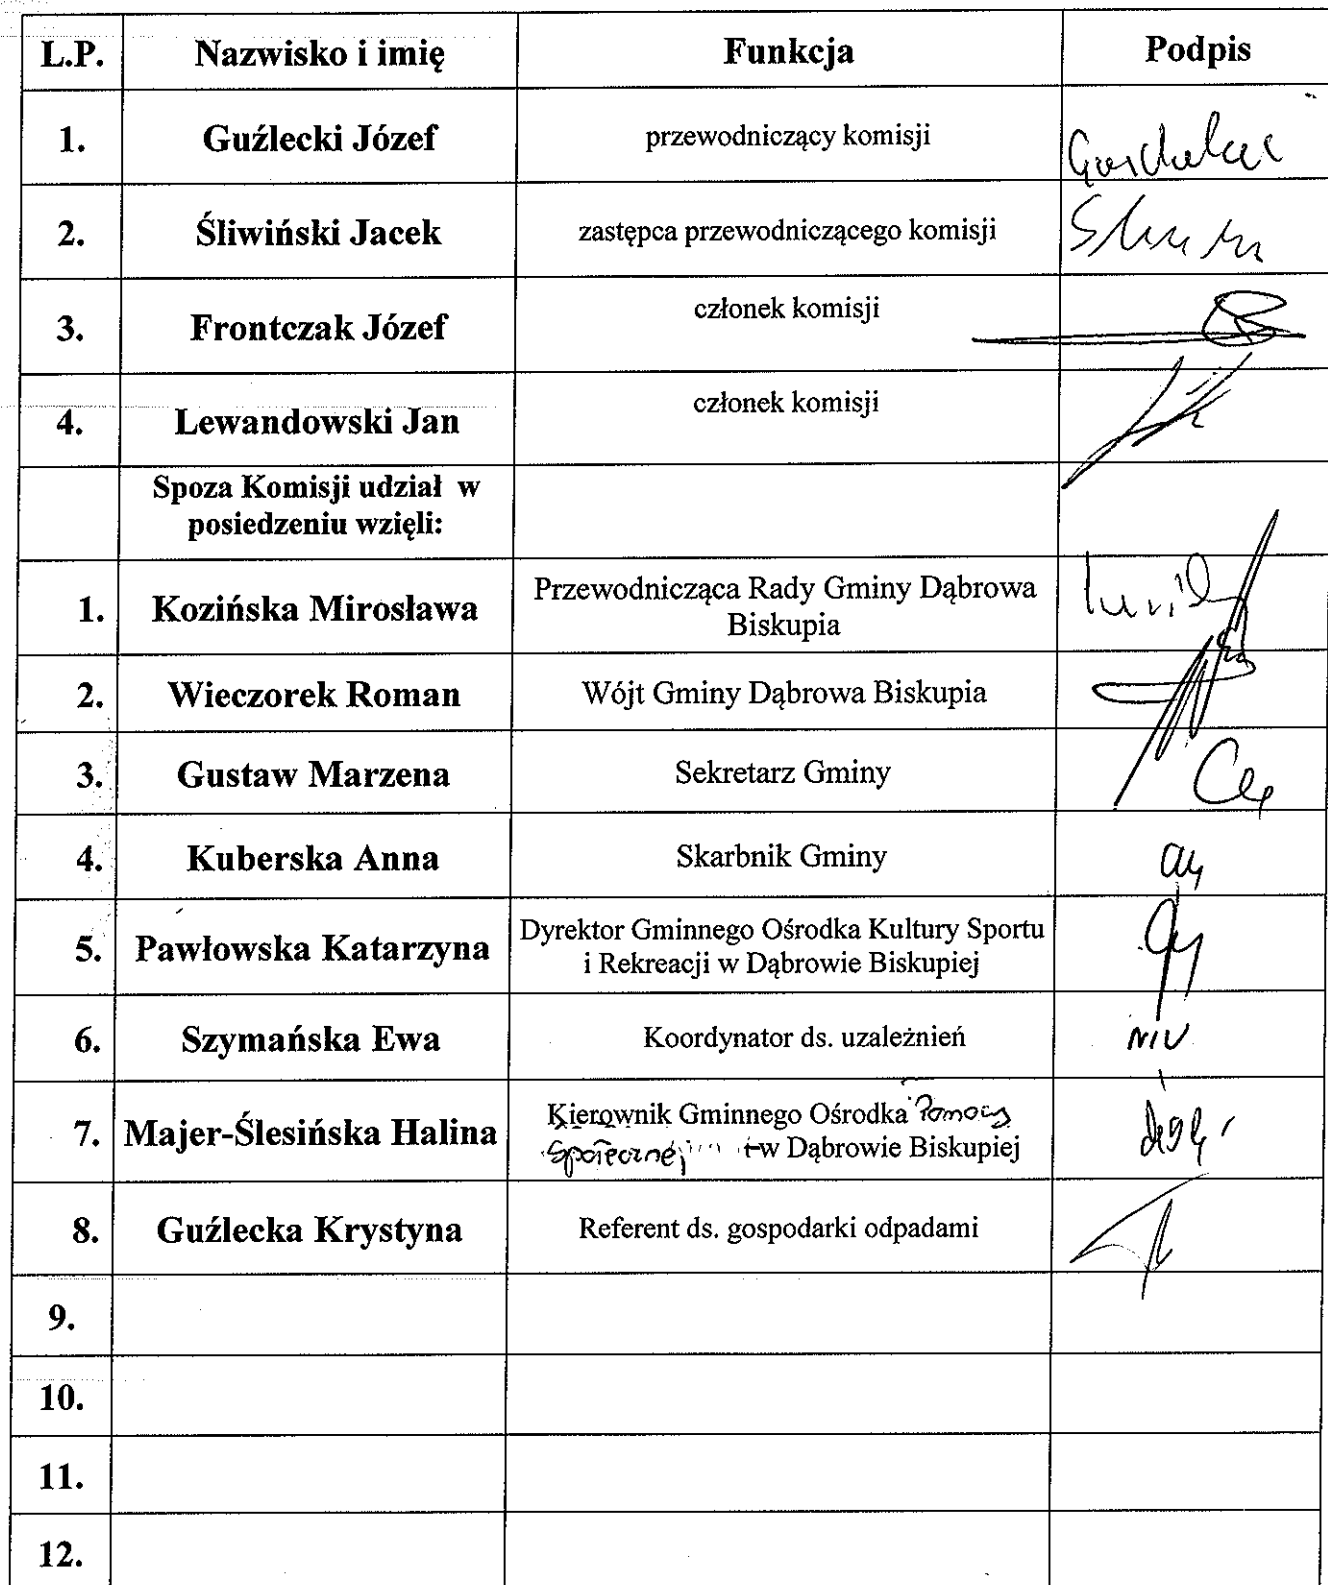 L.P. Nazwisko i imię Funkcja Podpis
1. Guźlecki Józef przewodniczący komisji
2. Śliwiński Jacek zastępca przewodniczącego komisji
3. Frontczak Józef członek komisji
4. Lewandowski Jan członek komisji
Spoza Komisji udział w
posiedzeniu wzięli:
1. Kozińska Mirosława Przewodnicząca Rady Gminy Dąbrowa
Biskupia
2. Wieczorek Roman Wójt Gminy Dąbrowa Biskupia
3. Gustaw Marzena Sekretarz Gminy
4. Kuberska Anna Skarbnik Gminy
5. Pawłowska Katarzyna Dyrektor Gminnego Ośrodka Kultury Sportu
i Rekreacji w Dąbrowie Biskupiej
6. Szymańska Ewa Koordynator ds. uzależnień
7. Majer-Ślesińska Halina Kierownik Gminnego Ośrodka Pomocy
Społecznej w Dąbrowie Biskupiej
8. Guźlecka Krystyna Referent ds. gospodarki odpadami
9.
10.
11.
12.